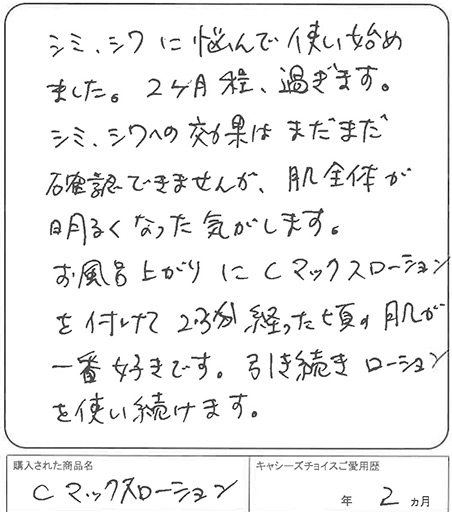 シミ、シワに悩んで使い始め
ました。2ヶ月程、過ぎます。
シミ、シワへの効果はまだまだ
確認できませんが、肌全体が
明るくなった気がします。
お風呂上がりにCマックスローション
を付けて2、3分経った頃の肌が
一番好きです。引き続きローション
を使い続けます。
購入された商品名
キャシーズチョイスご愛用歴
Cマックスローション
年 2 ヵ月